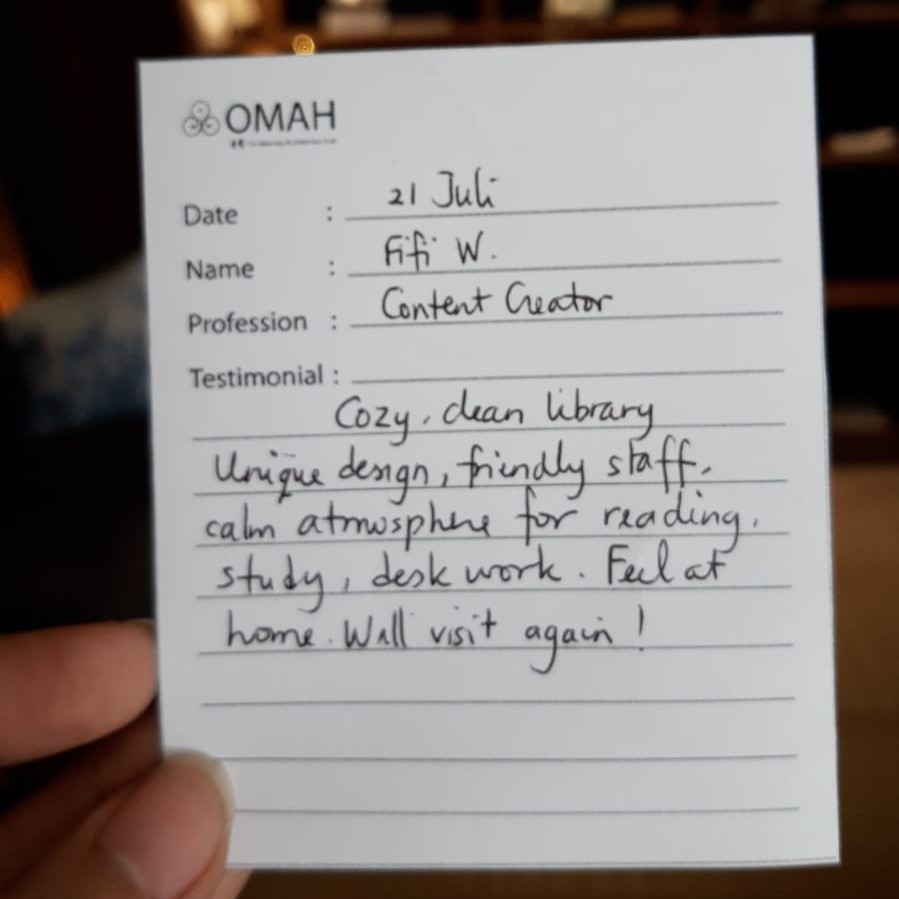 OMAH
Date : 21 Juli
Name : Fifi W.
Profession : Content Creator
Testimonial :
Cozy, clean library
Unique design, friendly staff,
calm atmosphere for reading,
study, desk work. Feel at
home. Will visit again!